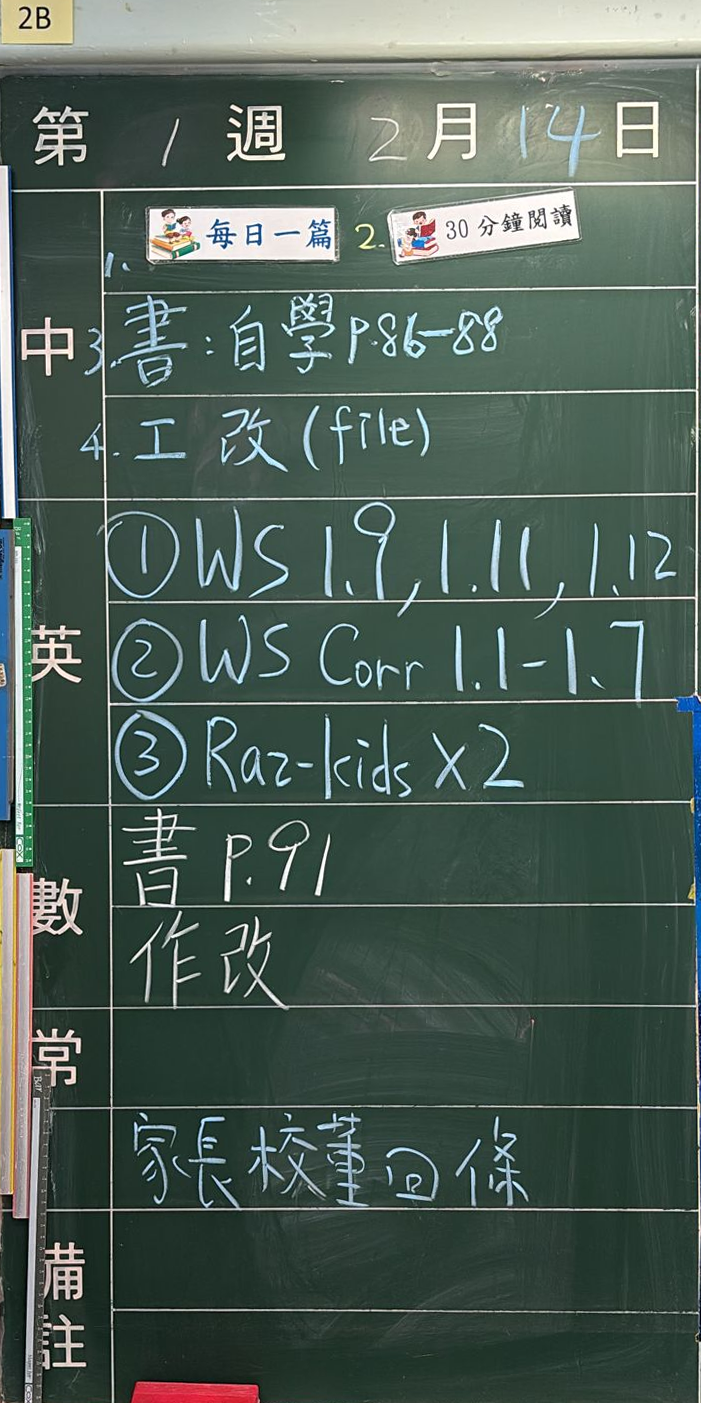 2B
第 1 週 2 月 14 日
1. 每日一篇 2. 30分鐘閱讀
中 3. 書:自學P.86-88
4. 工改(file)
① WS 1.9, 1.11, 1.12
英 ② WS Corr 1.1-1.7
③ Raz-kids x2
數 書 P.91
作改
常
家長校董回條
備註